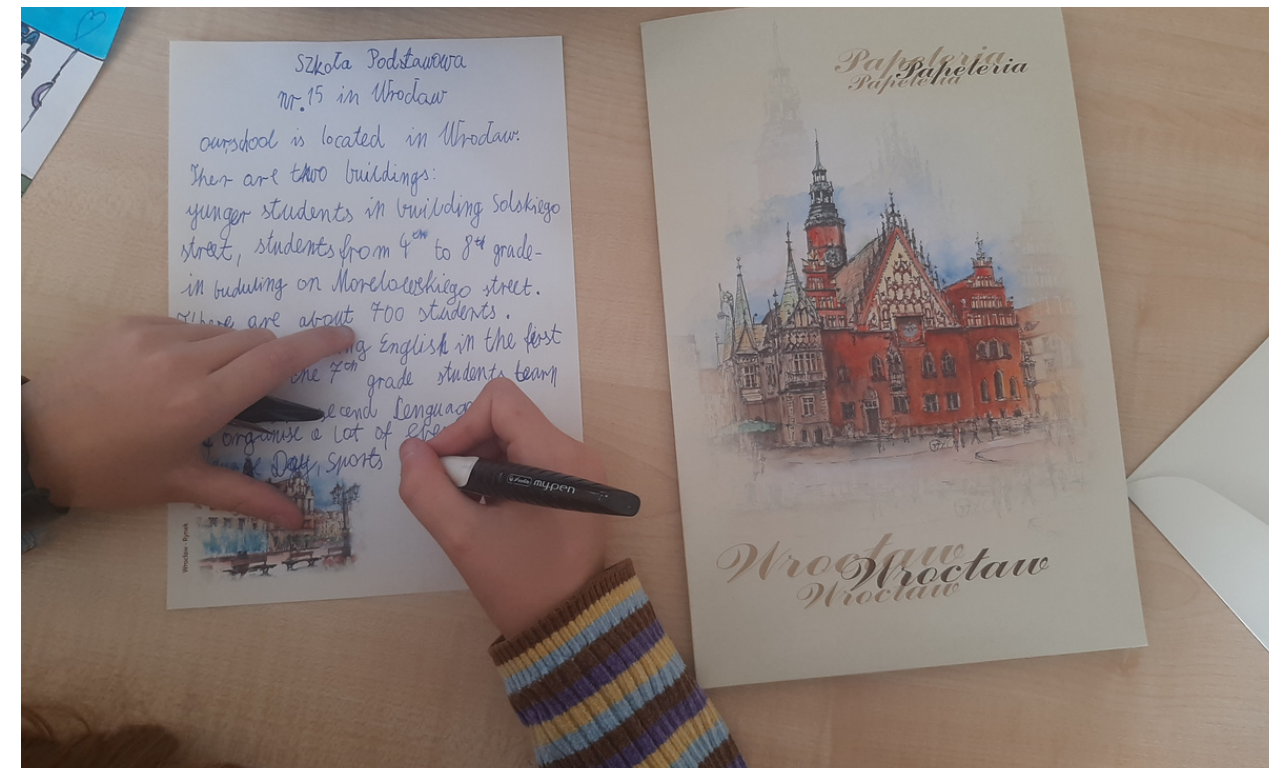 Szkoła Podstawowa
nr. 15 in Wrocław
ourschool is located in Wrocław.
Ther are two buildings:
yunger students in building Solskiego
street, students from 4th to 8th grade-
in buduling on Morelowskiego street.
There are about 700 students.
English in the first
7th grade students learn
secend Lenguag
organise a lot of
Day, Sports
Wrocław - Rynek
Herlitz my.pen
Papeteria
Papeteria
Papeteria
Wrocław
Wrocław
Wrocław